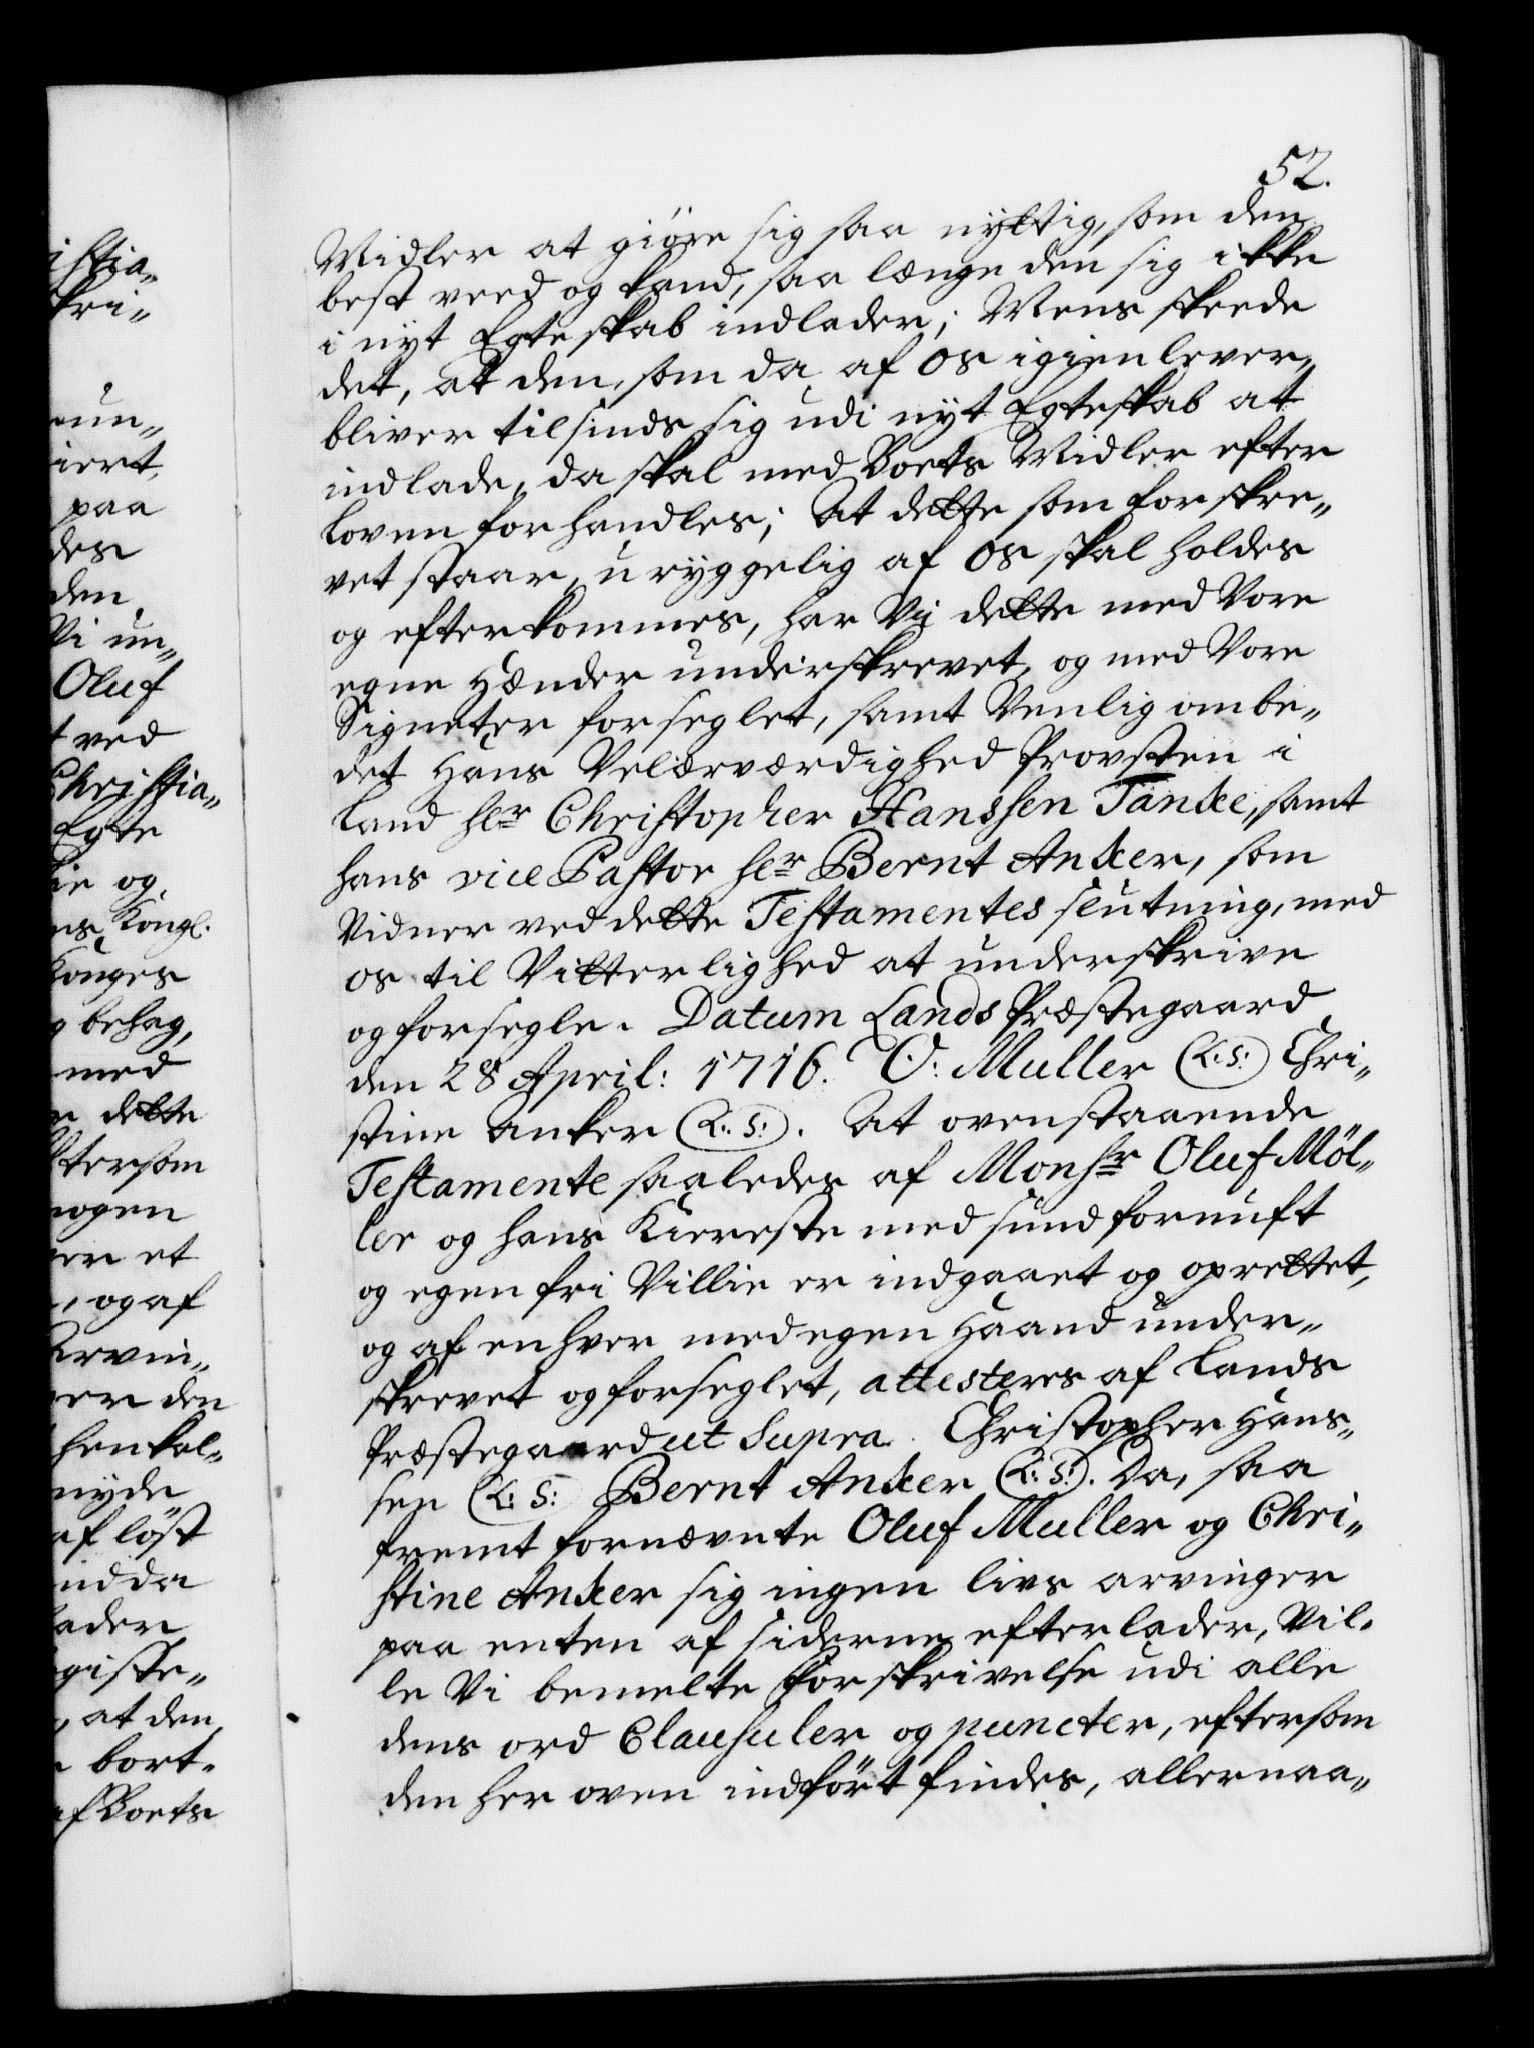 istia-
kri-
un-
iert,
paa
des
den
Vi un-
Oluf
t ved
Christia-
Egte
ie og
ns Kongl.
Konges
g behag,
med
r dette
ftersom
nogen
er et
, og af
Arvin-
er den
henkal-
nyde
af löst
ud da
lader
giste-
, at den
bort-
af Boets
52.
Midler at giöre sig saa nyttig, som den
best veed og kand, saa længe den sig ikke
i nyt Egteskab indlader; Mens skeede
det, at den, som da af os igien lever,
bliver tilsinds sig udi nyt Egteskab at
indlade, da skal med Boets Midler efter
Loven forhandles; At dette som forskre-
vet staar, uryggelig af os skal holdes
og efterkommes, har Vij dette med Vore
egne Hænder underskrevet, og med Vore
Signeter forseglet, samt Venlig ombe-
det Hans Velærværdighed Provsten i
Land Hr Christopher Hanssen Tanke, samt
hans vice Pastor Hr Bernt Anker, som
Vidner ved dette Testamentes slutning, med
os til Vitterlighed at underskrive
og forsegle. Datum Lands Præstegaard
den 28 April: 1716. O: Muller (L:S:) Chri-
stine Anker (L:S:). At ovenstaaende
Testamente saaledes af Monsr Oluf Möl-
ler og hans Kiereste med sund fornuft
og egen fri Villie er indgaaet og oprettet,
og af enhver med egen Haand under-
skrevet og forseglet, attesteres af Lands
Præstegaard ut Supra. Christopher Hans-
sen (L:S:) Bernt Anker (L:S:). Da, saa
fremt fornævnte Oluf Muller og Chri-
stine Anker sig ingen livs arvinger
paa enten af siderne efterlader, Vil-
le Vi bemelte Forskrivelse udi alle
dens ord Clausuler og puncter, eftersom
den her oven indfört findes, allernaa-